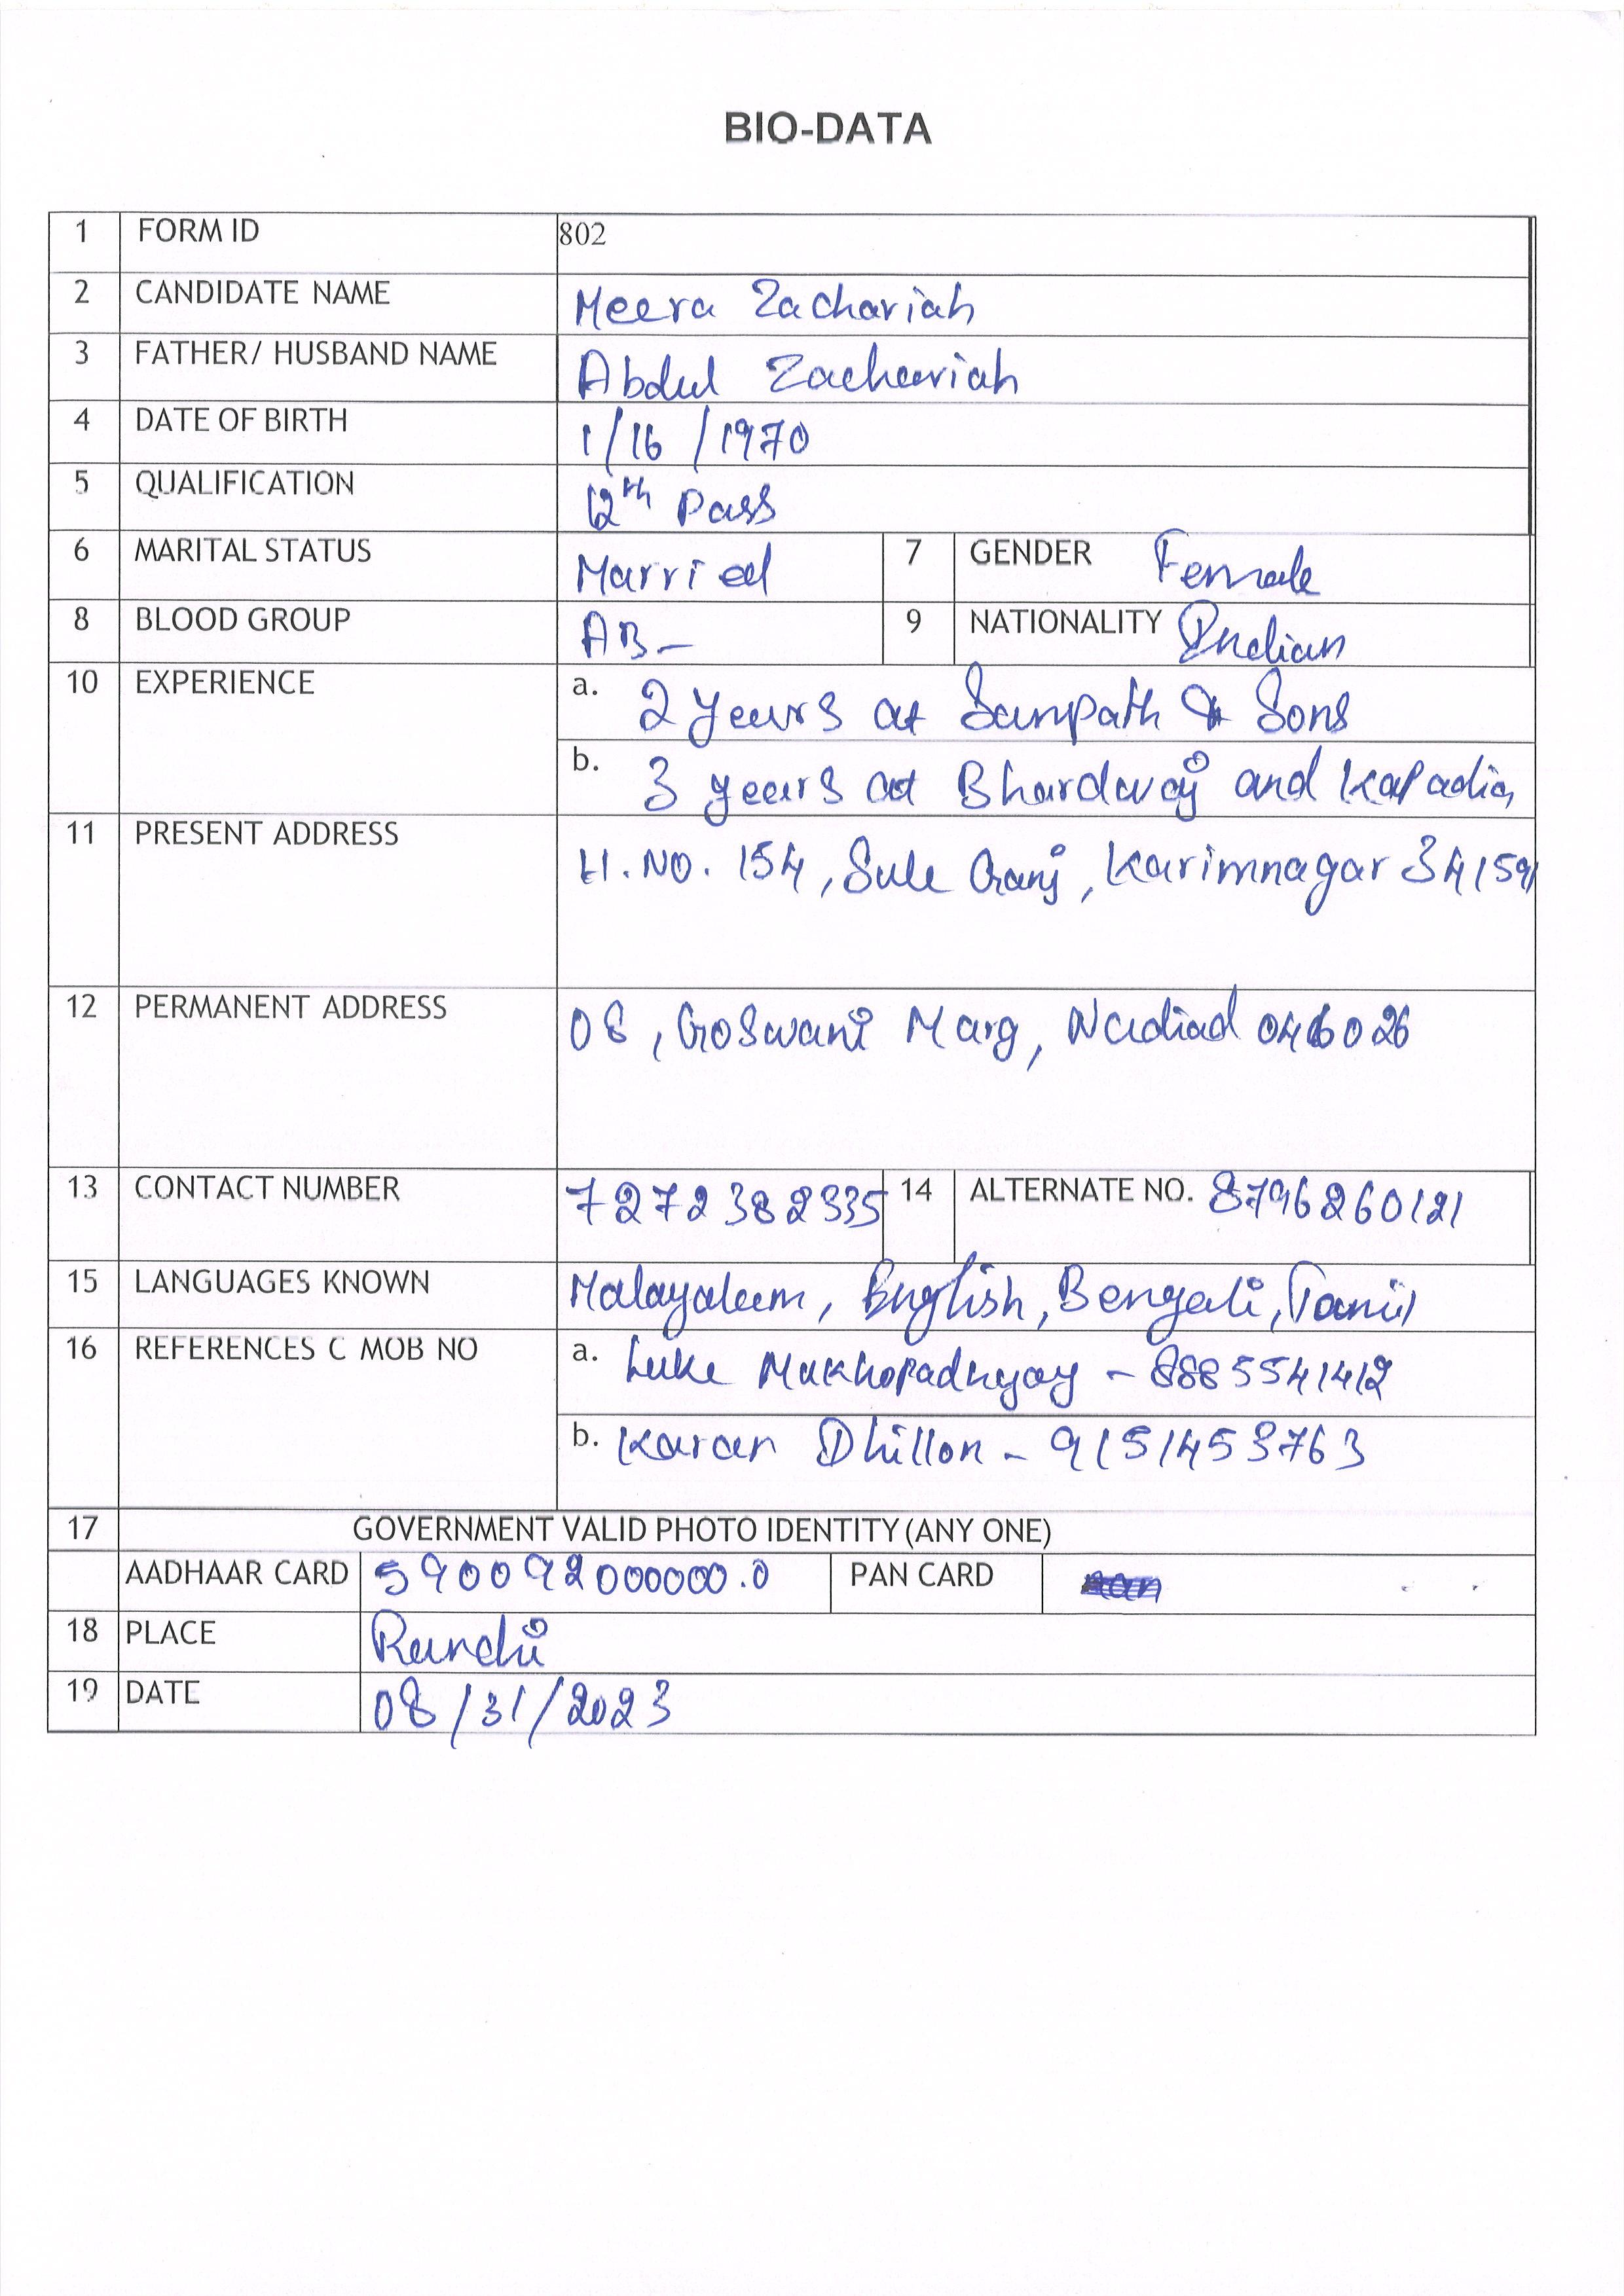 BIO-DATA
1 FORM ID 802
2 CANDIDATE NAME Meera Zachariah
3 FATHER/ HUSBAND NAME Abdul Zachariah
4 DATE OF BIRTH 1/16/1970
5 QUALIFICATION 12th Pass
6 MARITAL STATUS Married 7 GENDER Female
8 BLOOD GROUP AB- 9 NATIONALITY Indian
10 EXPERIENCE a. 2 years at Sampath & Sons
b. 3 years at Bhardwaj and Kapadia
11 PRESENT ADDRESS H.NO. 154, Sule Ganj, Karimnagar 341591
12 PERMANENT ADDRESS 08, Goswami Marg, Nadiad 046026
13 CONTACT NUMBER 7272382335 14 ALTERNATE NO. 8796260121
15 LANGUAGES KNOWN Malayalam, English, Bengali, Tamil
16 REFERENCES C MOB NO a. Luke Mukhopadhyay - 8885541412
b. Karan Dhillon - 9151453763
17 GOVERNMENT VALID PHOTO IDENTITY (ANY ONE)
AADHAAR CARD 590092000000.0 PAN CARD
18 PLACE Ranchi
19 DATE 08/31/2023